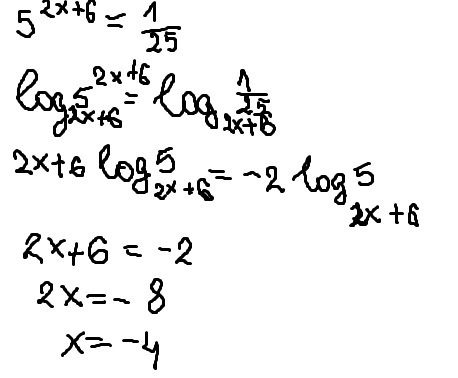 5^{2x+6} = 1/25
log_{2x+6} 5^{2x+6} = log_{2x+6} 1/25
2x+6 log_{2x+6} 5 = -2 log_{2x+6} 5
2x+6 = -2
2x = -8
x = -4